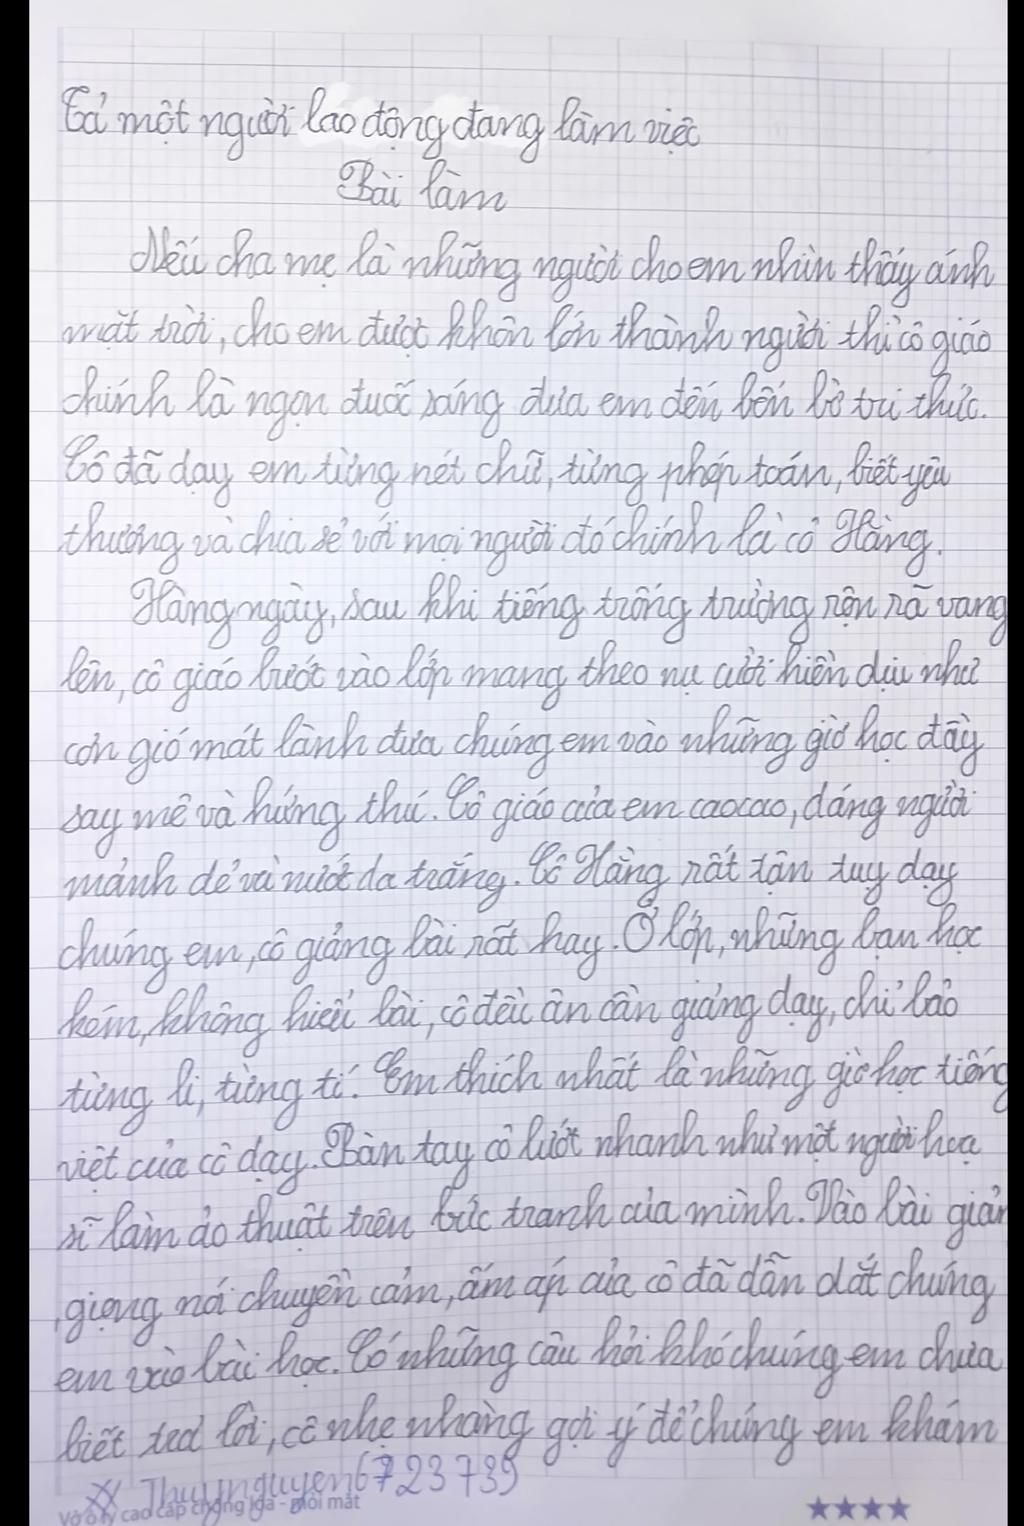 Tả một người lao động đang làm việc
Bài làm
Nếu cha mẹ là những người cho em nhìn thấy ánh
mặt trời, cho em được khôn lớn thành người thì cô giáo
chính là ngọn đuốc sáng đưa em đến bến bờ tri thức.
Cô đã dạy em từng nét chữ, từng phép toán, biết yêu
thương và chia sẻ với mọi người đó chính là cô Hằng.
Hàng ngày, sau khi tiếng trống trường rộn rã vang
lên, cô giáo bước vào lớp mang theo nụ cười hiền dịu như
cơn gió mát lành đưa chúng em vào những giờ học đầy
say mê và hứng thú. Cô giáo của em cao cao, dáng người
mảnh dẻ và nước da trắng. Cô Hằng rất tận tuy dạy
chúng em, cô giảng bài rất hay. Ở lớp, những bạn học
kém, không hiểu bài, cô đều ân cần giảng dạy, chỉ bảo
từng li, từng tí. Em thích nhất là những giờ học tiếng
việt của cô dạy. Bàn tay cô lướt nhanh như một người hoạ
sĩ làm ảo thuật trên bức tranh của mình. Vào bài giản
, giọng nói chuyền cảm, ấm áp của cô đã dẫn dắt chúng
em vào bài học. Có những câu hỏi khó chúng em chưa
biết trả lời, cô nhẹ nhàng gợi ý để chúng em khám
Thuynguyen6723739
Vở ô ly cao cấp chống lóa - mỏi mắt